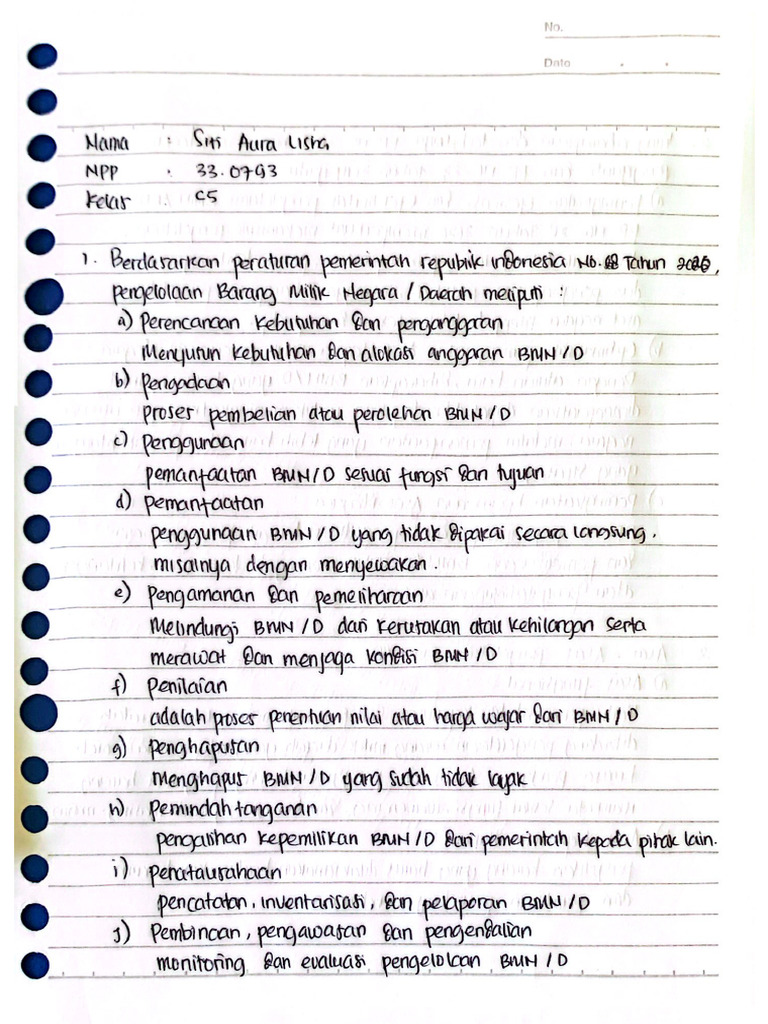 No.
Date
Nama : Siti Aura Lisha
NPP : 33.0793
Kelas : C5
1. Berdasarkan peraturan pemerintah republik indonesia No. Tahun
pengelolaan Barang Milik Negara / Daerah meliputi :
a) Perencanaan Kebutuhan dan penganggaran
Menyusun kebutuhan dan alokasi anggaran BMN/D
b) Pengadaan
proses pembelian atau perolehan BMN/D
c) Penggunaan
pemanfaatan BMN/D sesuai fungsi dan tujuan
d) pemanfaatan
penggunaan BMN/D yang tidak dipakai secara langsung.
misalnya dengan menyewakan.
e) Pengamanan dan pemeliharaan
Melindungi BMN/D dari kerusakan atau kehilangan serta
merawat dan menjaga kondisi BMN/D
f) Penilaian
adalah proses penentuan nilai atau harga wajar dari BMN/D
g) penghapusan
menghapus BMN/D yang sudah tidak layak
h) Pemindahtanganan
pengalihan kepemilikan BMN/D dari pemerintah kepada pihak lain.
i) penatausahaan
pencatatan, inventarisasi, dan pelaporan BMN/D
j) Pembinaan, pengawasan dan pengendalian
monitoring dan evaluasi pengelolaan BMN/D